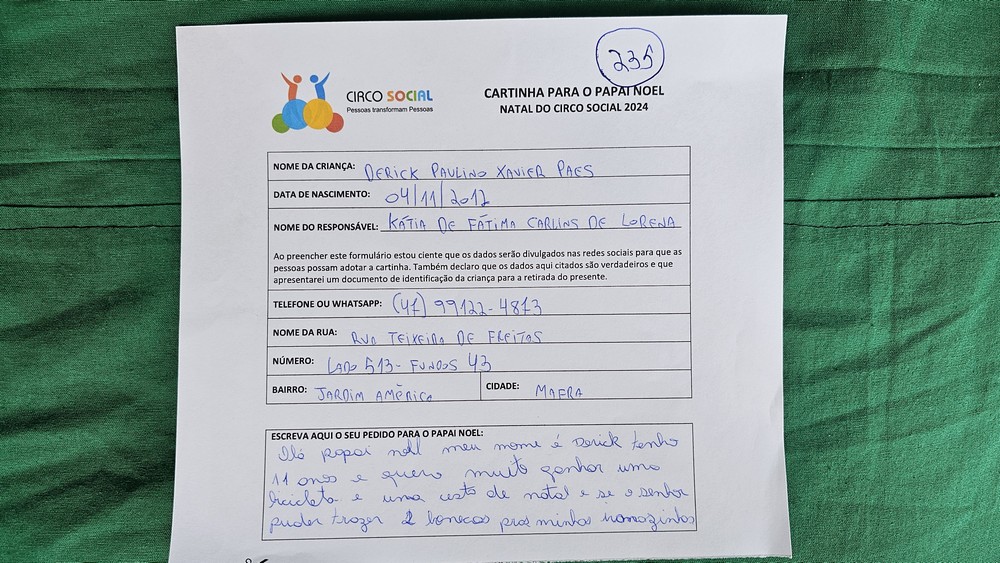 235
CIRCO SOCIAL
Pessoas transformam Pessoas
CARTINHA PARA O PAPAI NOEL
NATAL DO CIRCO SOCIAL 2024
NOME DA CRIANÇA: DERICK PAULINO XAVIER PAES
DATA DE NASCIMENTO: 04/11/2012
NOME DO RESPONSÁVEL: KÁTIA DE FÁTIMA CARLINS DE LORENA
Ao preencher este formulário estou ciente que os dados serão divulgados nas redes sociais para que as
pessoas possam adotar a cartinha. Também declaro que os dados aqui citados são verdadeiros e que
apresentarei um documento de identificação da criança para a retirada do presente.
TELEFONE OU WHATSAPP: (47) 99122-4873
NOME DA RUA: RUA TEIXEIRA DE FREITAS
NÚMERO: LADO 513- FUNDOS 43
BAIRRO: JARDIM AMÉRICA CIDADE: MAFRA
ESCREVA AQUI O SEU PEDIDO PARA O PAPAI NOEL:
Olá papai noll meu nome é Derick tenho
11 anos e quero muito ganhar uma
bicicleta e uma cesta de natal e se o senhor
puder trazer 2 bonecas pras minhas irmazinhas